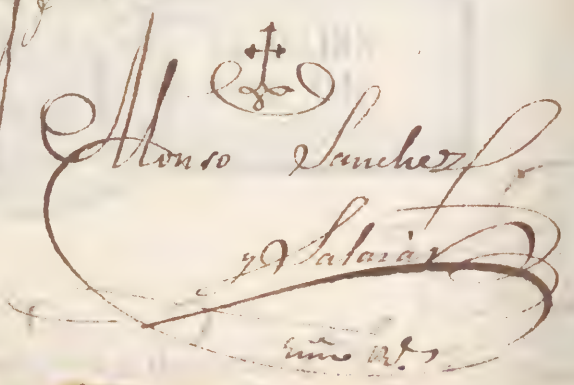 Alonso Sanchez
y Salaiàr